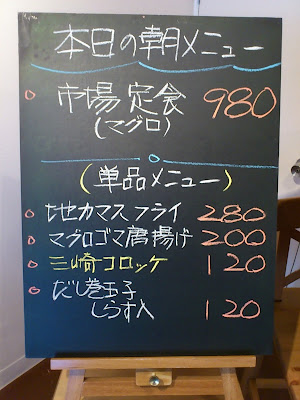 本日の朝メニュー
○ 市場定食 980
(マグロ)
(単品メニュー)
○ 地カマスフライ 280
○ マグロゴマ唐揚げ 200
○ 三崎コロッケ 120
○ だし巻玉子
しらす入 120